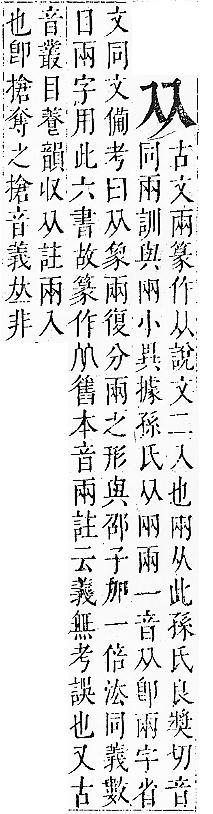 从
古文兩篆作从說文二入也㒳从此孫氏良獎切音
同兩訓與㒳小異據孫氏从㒳兩一音从卽兩字省
文同文備考曰从象兩復分兩之形與邵子加一倍法同義數
日兩字用此六書故篆作舊本音兩註云義無考誤也又古
音叢目養韻收从註兩入
也卽搶奪之搶音義𠀤非